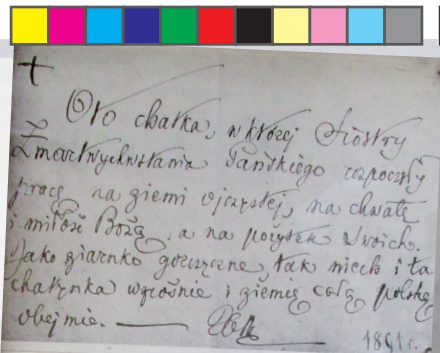 Oto chatka, w której Siostry
Zmartwychwstania Pańskiego rozpoczęły
pracę na ziemi ojczystej, na chwałę
i miłość Bożą, a na pożytek Swoich.
Jako ziarnko gorczyczne, tak niech i ta
chatynka wzrośnie i ziemię całą polską
obejmie. —
1891 r.